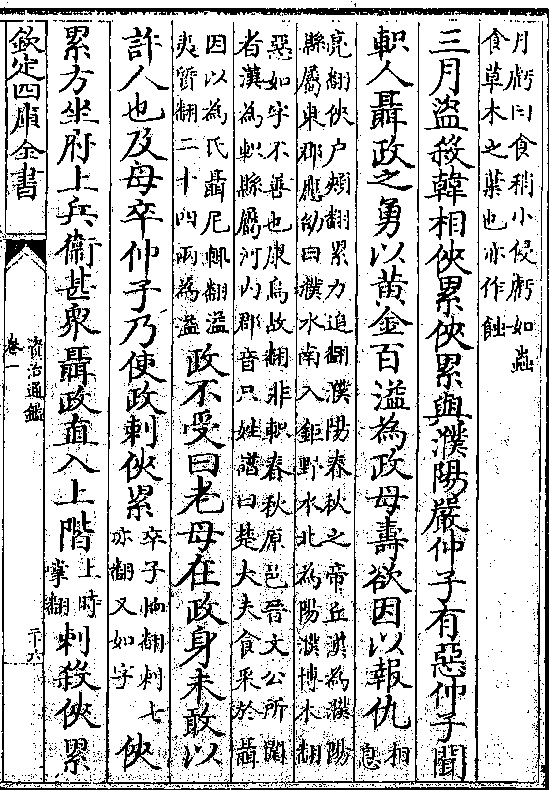 月虧曰食稍小侵虧如蟲
食草木之葉也亦作蝕
三月盜殺韓相俠累俠累與濮陽嚴仲子有惡仲子聞
軹人聶政之勇以黃金百溢為政母壽欲因以報仇相
惡
亮翻俠户頰翻累力追翻濮陽春秋之帝丘漢為濮陽
縣屬東郡應劭曰濮水南入鉅野水北為陽濮博木翻
惡如字不善也康烏故翻非軹春秋原邑晉文公所圍
者漢為軹縣屬河内郡音只姓譜曰楚大夫食采於聶
因以為氏聶尼輒翻溢
夷質翻二十四兩為溢
政不受曰老母在政身未敢以
許人也及母卒仲子乃使政刺俠累
卒子恤翻刺七
亦翻又如字
俠
累方坐府上兵衛甚衆聶政直入上階
上時
掌翻
刺殺俠累
欽定四庫全書
資治通鑑
卷一
二十六